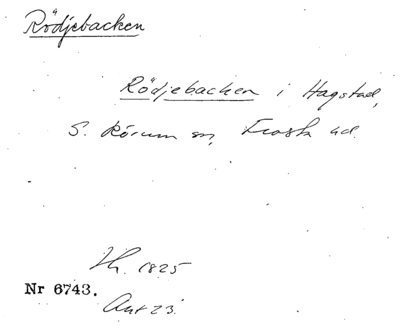 Rödjebacken
Rödjebacken i Hagstad,
S. Rörum sn, Frosta hd.
Lh. 1825
Nr 6743.
Ant 23.